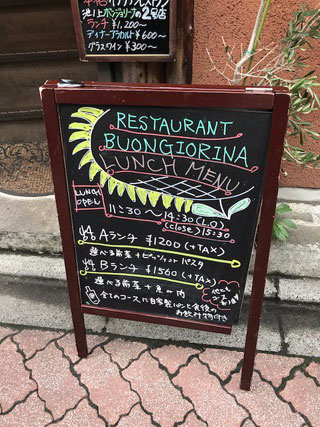 池上ボンジョリーナの2号店
ランチ ¥1,200〜
ディナーアラカルト¥600〜
グラスワイン ¥300〜
RESTAURANT
BUONGIORINA
LUNCH MENU
LUNCH
OPEN
11:30〜14:30(L.O)
(close)15:30
Aランチ ¥1200(+TAX)
選べる前菜+ピッツァorパスタ
Bランチ ¥1560(+TAX)
選べる前菜+魚or肉
全てのコースに自家製パンと食後の
お飲み物付き